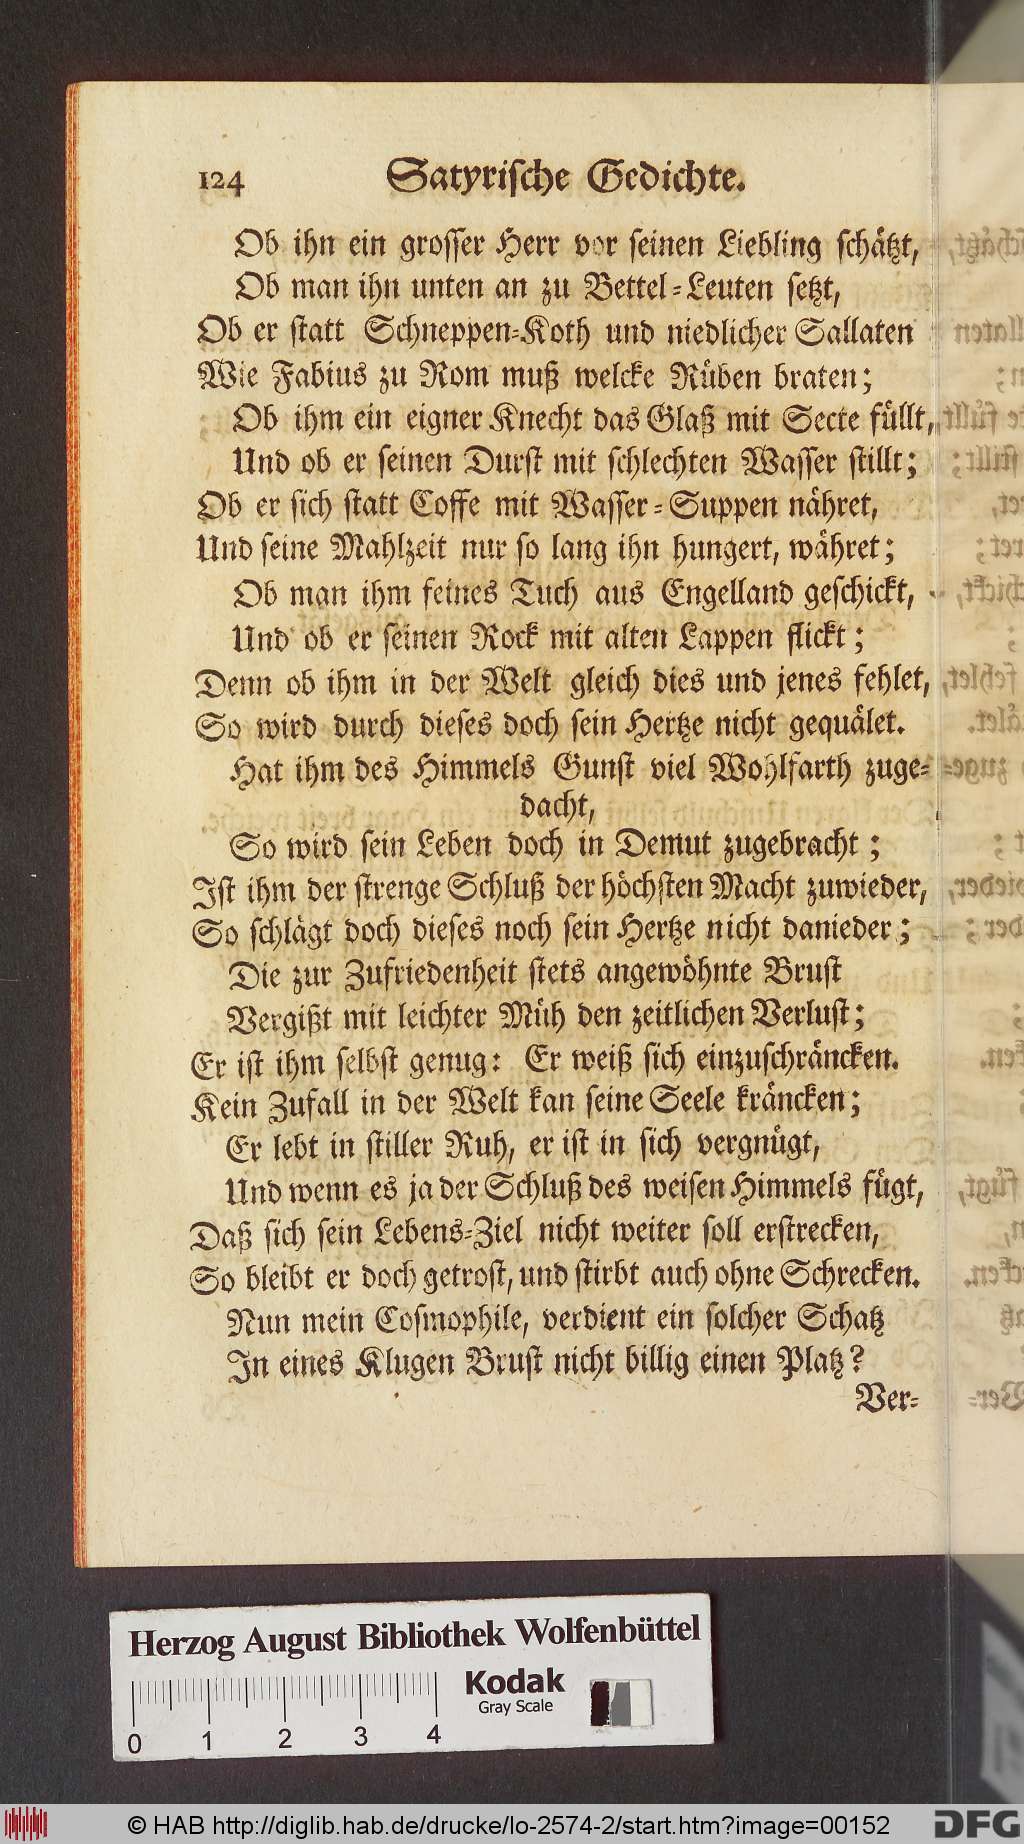 124 Satyrische Gedichte.
Ob ihn ein grosser Herr vor seinen Liebling schätzt,
Ob man ihn unten an zu Bettel-Leuten setzt,
Ob er statt Schneppen-Koth und niedlicher Sallaten
Wie Fabius zu Rom muß welcke Rüben braten;
Ob ihm ein eigner Knecht das Glaß mit Secte füllt,
Und ob er seinen Durst mit schlechten Wasser stillt;
Ob er sich statt Coffe mit Wasser-Suppen nähret,
Und seine Mahlzeit nur so lang ihn hungert, währet;
Ob man ihm feines Tuch aus Engelland geschickt,
Und ob er seinen Rock mit alten Lappen flickt;
Denn ob ihm in der Welt gleich dies und jenes fehlet,
So wird durch dieses doch sein Hertze nicht gequälet.
Hat ihm des Himmels Gunst viel Wohlfarth zuge-
dacht,
So wird sein Leben doch in Demut zugebracht;
Ist ihm der strenge Schluß der höchsten Macht zuwieder,
So schlägt doch dieses noch sein Hertze nicht danieder;
Die zur Zufriedenheit stets angewöhnte Brust
Vergißt mit leichter Müh den zeitlichen Verlust;
Er ist ihm selbst genug: Er weiß sich einzuschräncken.
Kein Zufall in der Welt kan seine Seele kräncken;
Er lebt in stiller Ruh, er ist in sich vergnügt,
Und wenn es ja der Schluß des weisen Himmels fügt,
Daß sich sein Lebens-Ziel nicht weiter soll erstrecken,
So bleibt er doch getrost, und stirbt auch ohne Schrecken.
Nun mein Cosmophile, verdient ein solcher Schatz
In eines Klugen Brust nicht billig einen Platz?
Ver-
Herzog August Bibliothek Wolfenbüttel
Kodak
Gray Scale
0 1 2 3 4
© HAB http://diglib.hab.de/drucke/lo-2574-2/start.htm?image=00152
DFG